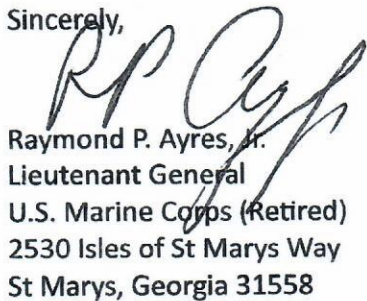 Sincerely,
Raymond P. Ayres, Jr.
Lieutenant General
U.S. Marine Corps (Retired)
2530 Isles of St Marys Way
St Marys, Georgia 31558